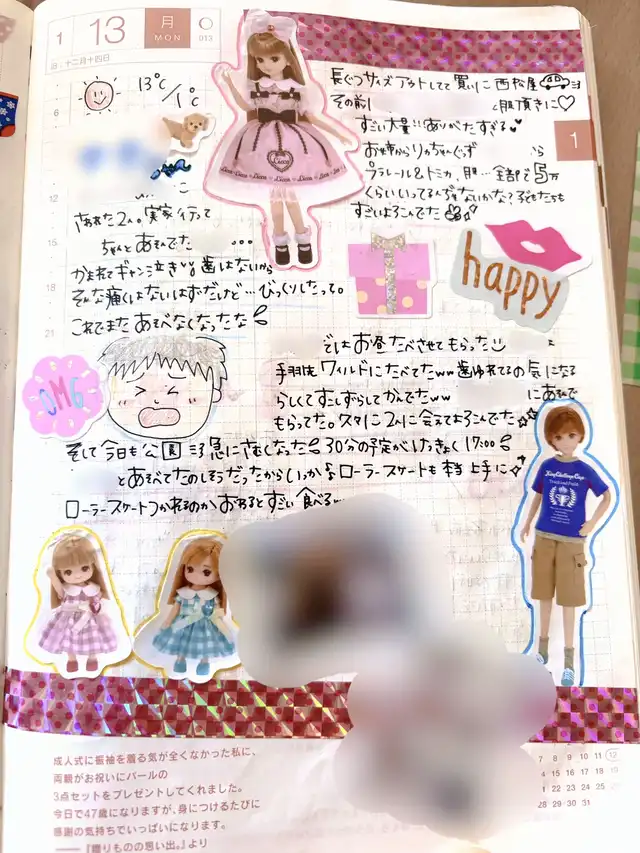 1 13 月 MON 013
旧:十二月十四日
13℃/1℃
長ぐつサイズアウトしてて買いに西松屋
その前に服頂きに♡
すごい大量!!ありがたすぎる
プラレール&トミカ、服…全部で5万
くらいいってるんじゃないかな?子どもたちも
すごいよろこんでた
Licca
1
6
12
15
18
21
2人。実家行って
ちゃんとあそんでた …
ギャン泣き 歯はないから
そんな痛くはないはずだけど…びっくりしたって。
これでまたあそべなくなったな
happy
OMG
ではお昼たべさせてもらった
手羽先ワイルドにたべてたww歯ゆれてるの気になる
らしくてずらしてかんでたww にあそんで
もらってた。久々に2人に会えてよろこんでた☆
そして今日も公園 急にさむくなった 30分の予定がけっきょく17:00
とあそべてたのしそうだったからいっか ローラースケートも本当上手に
ローラースケートつかれるのか おわるとすごい食べる
成人式に振袖を着る気が全くなかった私に、
両親がお祝いにパールの
3点セットをプレゼントしてくれました。
今日で47歳になりますが、身につけるたびに
感謝の気持ちでいっぱいになります。
――『贈りものの思い出。』より
7 8 9 10 11 12
4 15 16 17 18 19
1 22 23 24 25
28 29 30 31